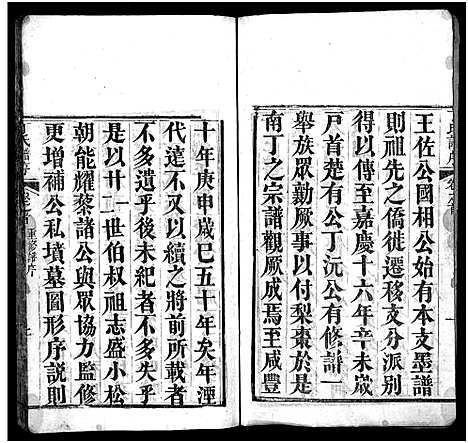 王佐公國相公始有本支墨譜
則祖先之僑徙遷移支分派別
得以傳至嘉慶十六年辛未歲
戸首楚右公丁沅公有修譜一
舉族眾勷厥事以付梨棗於是
南丁之宗譜觀厥成焉至咸豐
十年庚申歲巳五十年矣年湮
代遠不又以續之將前所載者
不多遺乎後未紀者不多失乎
是以廿二世伯权祖志盛小松
朝能耀藜諸公與眾協力監修
更增補公私墳墓圖形序說則
重修譜序